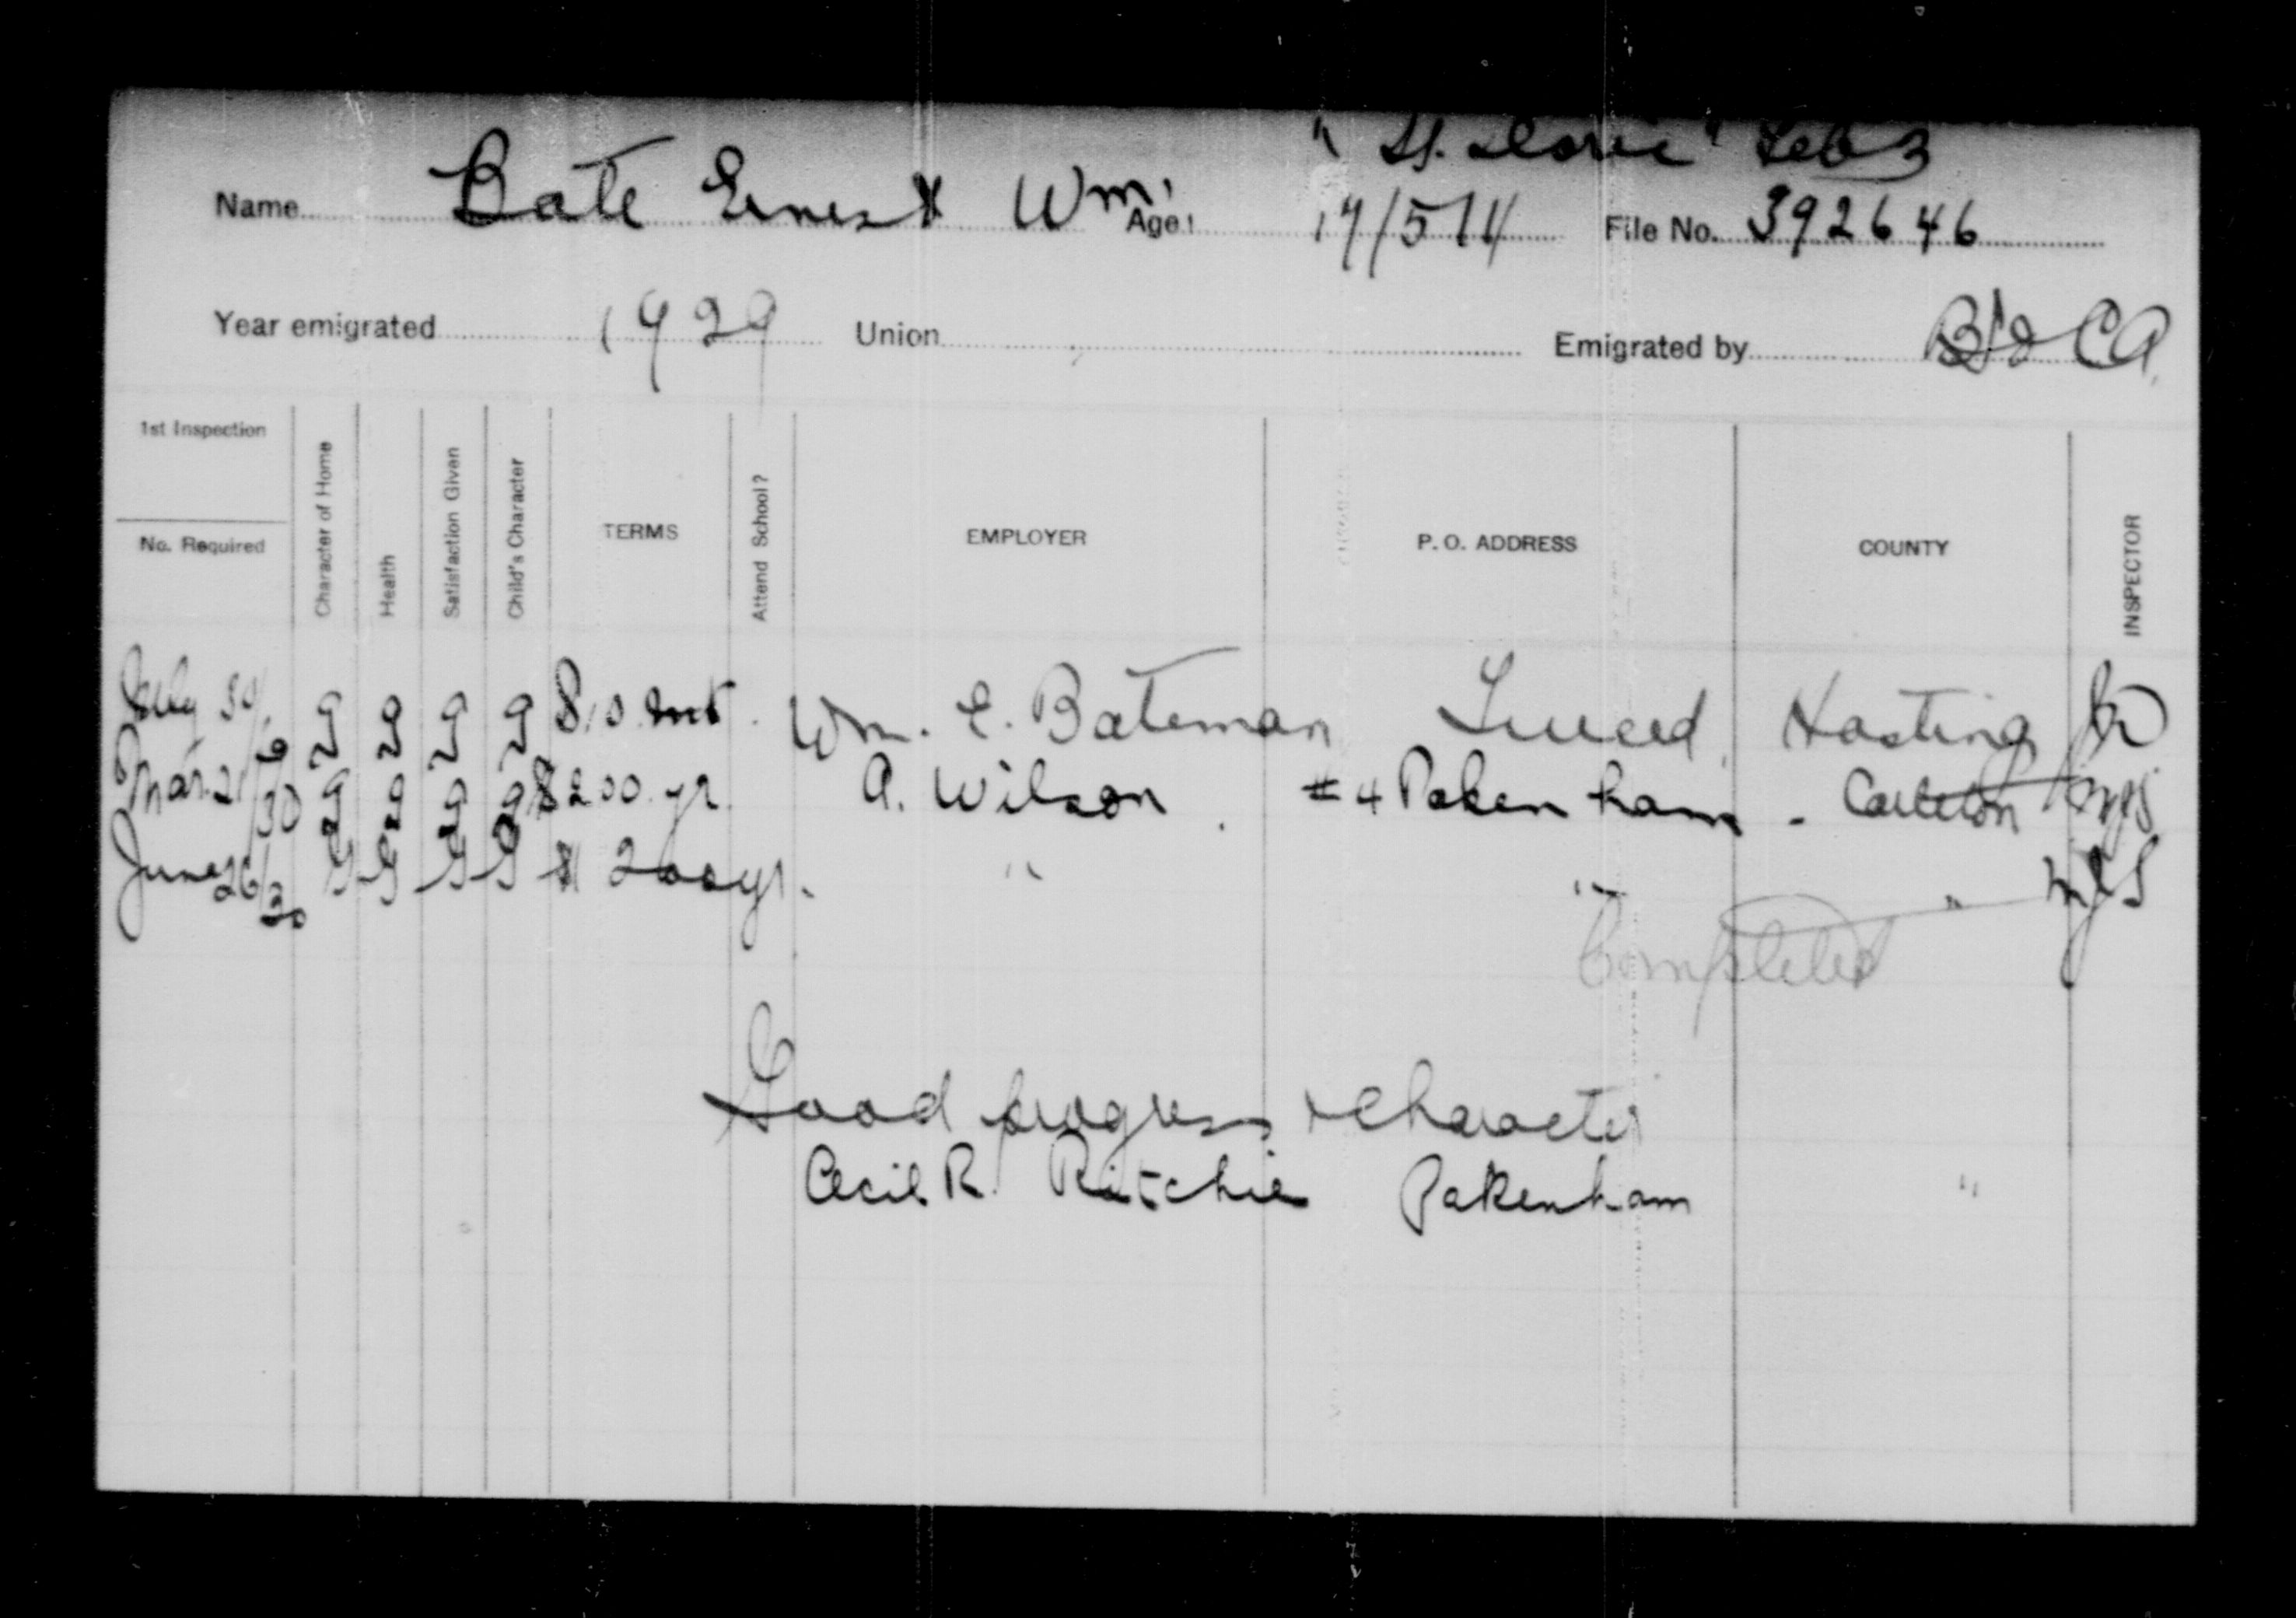 "SS. Doric" Feb 3
Name Bate Ernest Wm. Age 17/5 14 File No. 392646
Year emigrated 1929 Union Emigrated by
1st Inspection
No. Required Character of Home Health Satisfaction Given Child's Character TERMS Attend School? EMPLOYER P.O. ADDRESS COUNTY INSPECTOR
July 30/ g g g g $10 mt. Wm. E. Bateman Tweed Hastings
Mar. 21/30 g g g g $200 yr. A. Wilson #4 Pakenham - Carleton
June 26/30 g g g g $ 200 yr. " " " MJS
Completed
Good progress & character
Cecil R. Ritchie Pakenham "